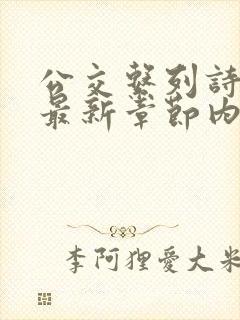 公交繫列詩
最新章節內
李阿狸愛大米